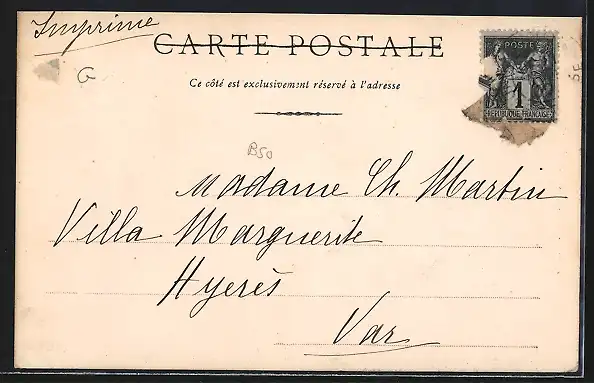 Imprimé
CARTE POSTALE
G
Ce côté est exclusivement réservé à l'adresse
POSTES
1
REPUBLIQUE FRANÇAISE
B50
Madame Ch. Martin
Villa Marguerite
Hyerès
Var